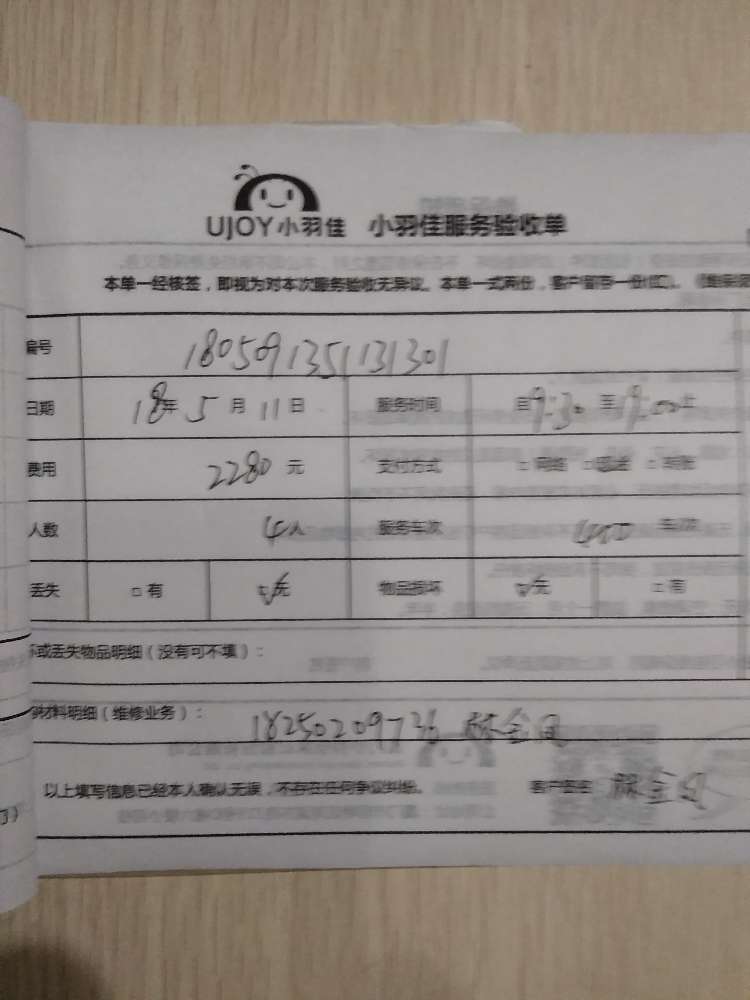 UJOY小羽佳 小羽佳服务验收单
本单一经核签，即视为对本次服务验收无异议。本单一式两份，客户留存一份
编号 1805091351131301
日期 18年 5 月 11 日 服务时间 自9:30 至19:00止
费用 2280 元 支付方式 □网络 □现金 □转账
人数 4人 服务车次 车/次
丢失 □有 □无 物品损坏 □无 □有
坏或丢失物品明细（没有可不填）：
材料明细（维修业务）： 18250209736
以上填写信息已经本人确认无误，不存在任何争议纠纷。 客户签名